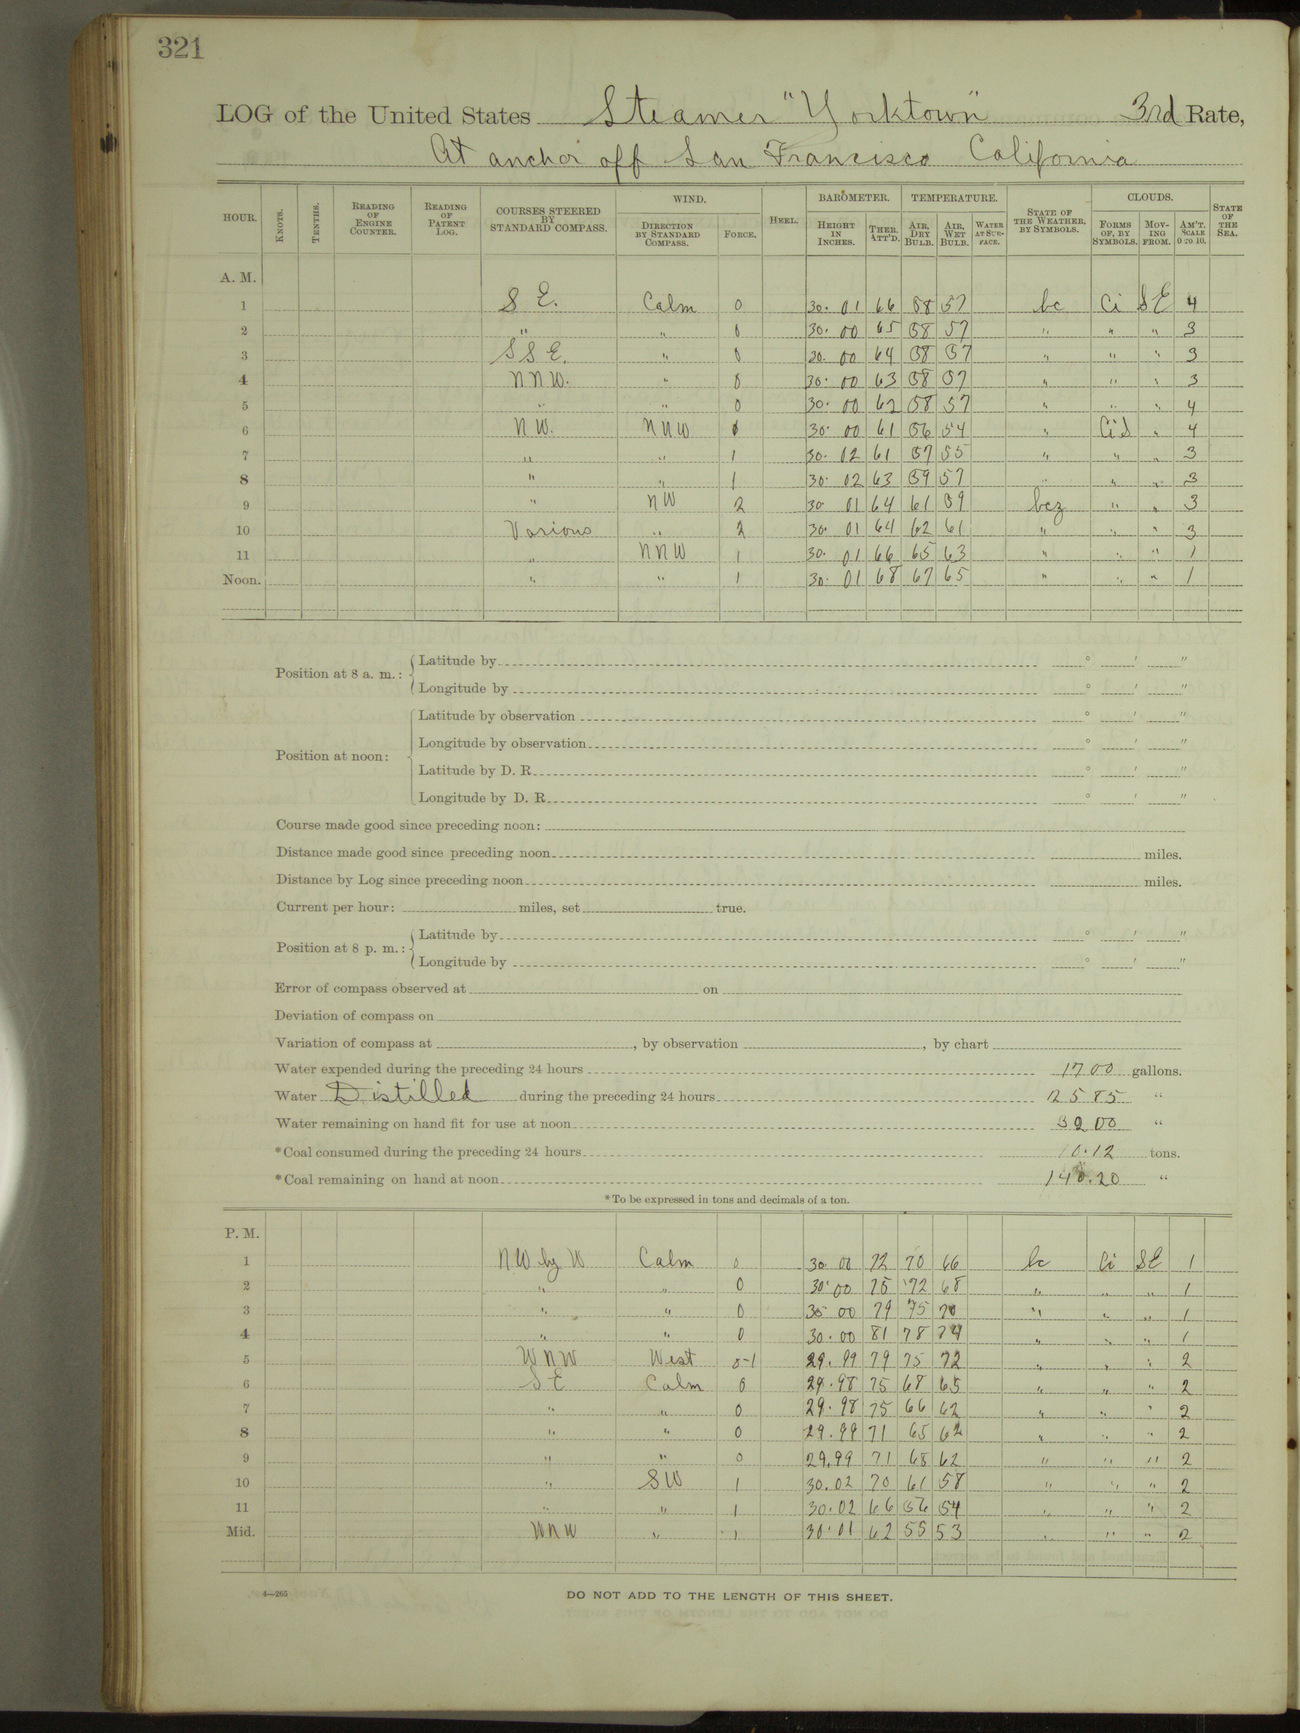 321
LOG of the United States Steamer "Yorktown" 3rd Rate,
At anchor off San Francisco California
HOUR. KNOTS. TENTHS. READING OF ENGINE COUNTER. READING OF PATENT LOG. COURSES STEERED BY STANDARD COMPASS. WIND. DIRECTION BY STANDARD COMPASS. FORCE. HEEL. BAROMETER. HEIGHT IN INCHES. THER. ATT'D. TEMPERATURE. AIR, DRY BULB. AIR, WET BULB. WATER AT SURFACE. STATE OF THE WEATHER, BY SYMBOLS. CLOUDS. FORMS OF, BY SYMBOLS. MOVING FROM. AM'T, SCALE 0 TO 10. STATE OF THE SEA.
A. M.
1 S E. Calm 0 30. 01 66 58 57 bc Ci S E 4
2 " " 0 30. 00 65 58 57 " " " 3
3 S S E. " 0 30. 00 64 58 57 " " " 3
4 N N W. " 0 30. 00 63 58 57 " " " 3
5 " " 0 30. 00 62 58 57 " " " 4
6 N W. N N W 30. 00 61 56 54 " Ci S " 4
7 " " 1 30. 02 61 57 55 " " " 3
8 " " 1 30. 02 63 59 57 " " " 3
9 " N W 2 30 01 64 61 59 bcz " " 3
10 Various " 2 30. 01 64 62 61 " " " 3
11 " N N W 1 30. 01 66 65 63 " " " 1
Noon. " " 1 30. 01 68 67 65 " " " 1
Position at 8 a. m.: Latitude by ° ′ ″
Longitude by ° ′ ″
Position at noon: Latitude by observation ° ′ ″
Longitude by observation ° ′ ″
Latitude by D. R. ° ′ ″
Longitude by D. R. ° ′ ″
Course made good since preceding noon:
Distance made good since preceding noon miles.
Distance by Log since preceding noon miles.
Current per hour: miles, set true.
Position at 8 p. m.: Latitude by ° ′ ″
Longitude by ° ′ ″
Error of compass observed at on
Deviation of compass on
Variation of compass at , by observation , by chart
Water expended during the preceding 24 hours 1700 gallons.
Water Distilled during the preceding 24 hours 2585 "
Water remaining on hand fit for use at noon 3200 "
*Coal consumed during the preceding 24 hours 10.12 tons.
*Coal remaining on hand at noon 140.20 "
*To be expressed in tons and decimals of a ton.
P. M.
1 N W by W Calm 0 30 00 72 70 66 bc Ci S E 1
2 " " 0 30 00 75 72 68 " " " 1
3 " " 0 30 00 79 75 70 " " " 1
4 " " 0 30.00 81 78 74 " " " 1
5 W N W West 0-1 29.99 79 75 72 " " " 2
6 S E Calm 0 29.98 75 68 65 " " " 2
7 " " 0 29.98 75 66 62 " " " 2
8 " " 0 29.99 71 65 62 " " " 2
9 " " 0 29.99 71 68 62 " " " 2
10 " S W 1 30.02 70 61 58 " " " 2
11 " " 1 30.02 66 56 54 " " " 2
Mid. W N W " 1 30.01 62 55 53 " " " 2
4—265 DO NOT ADD TO THE LENGTH OF THIS SHEET.